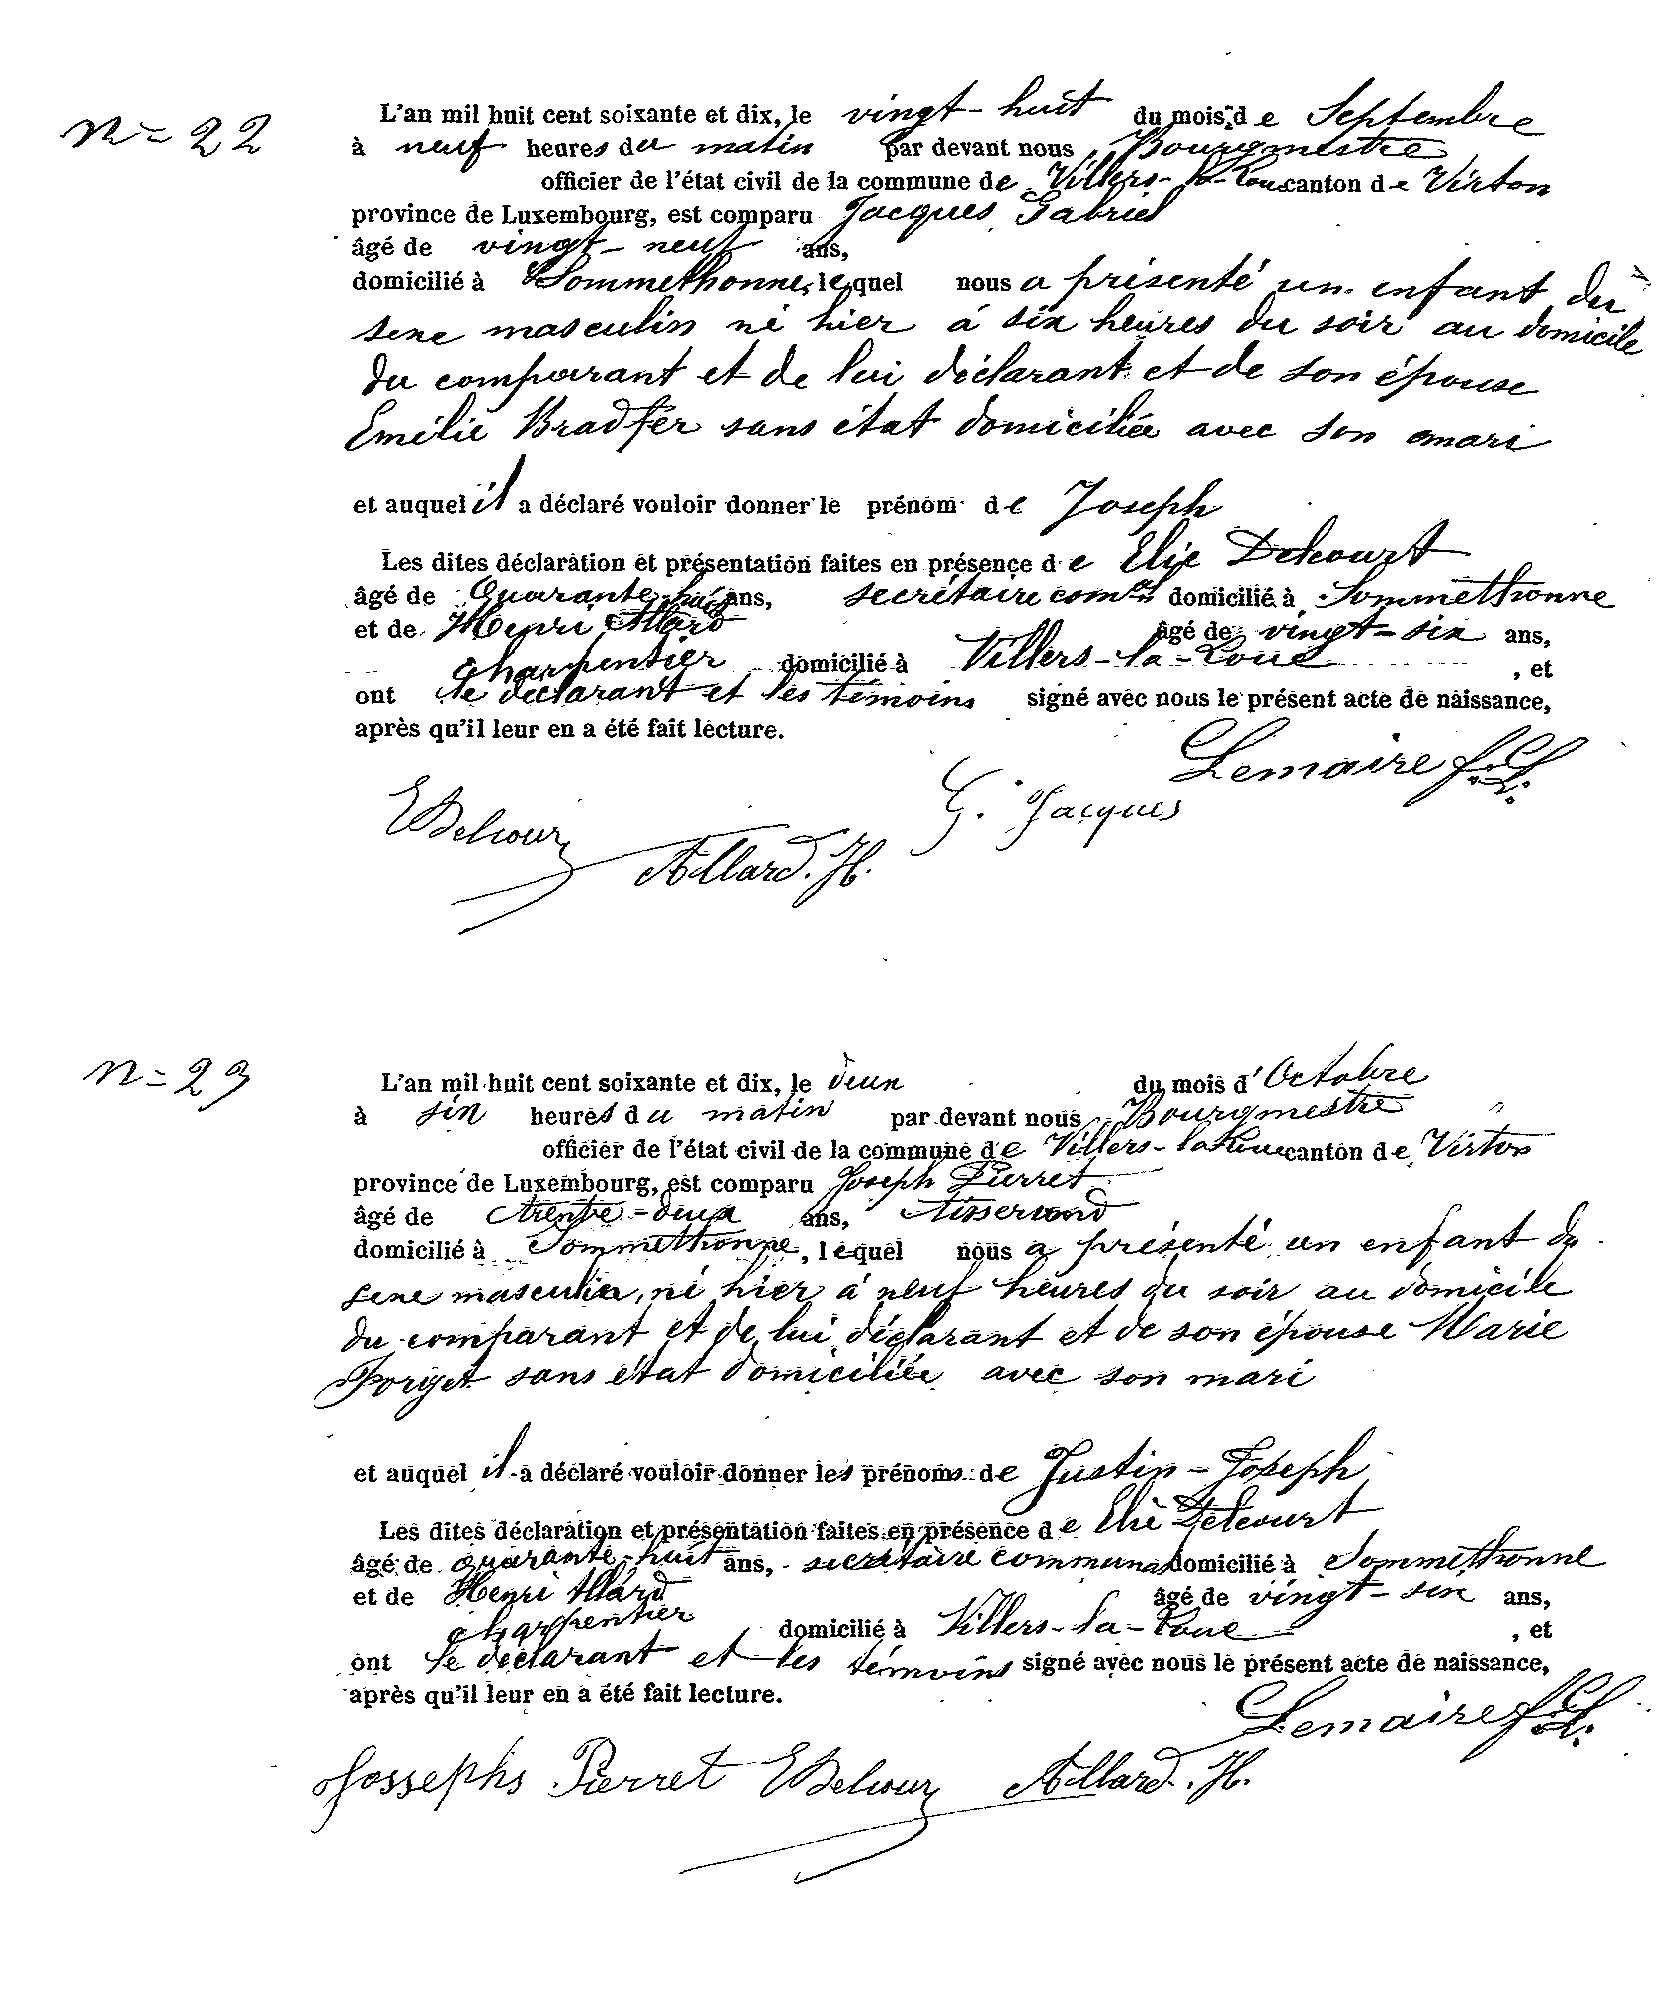 N= 22
L'an mil huit cent soixante et dix, le vingt-huit du mois de Septembre
à neuf heures du matin par devant nous, Bourgmestre
officier de l'état civil de la commune de Villers-la-Loue canton de Virton
province de Luxembourg, est comparu Jacques Gabriel
âgé de vingt-neuf ans,
domicilié à Sommethonne, lequel nous a présenté un enfant du
sexe masculin né hier à six heures du soir au domicile
du comparant et de lui déclarant et de son épouse
Emélie Bradfer sans état domiciliée avec son mari
et auquel il a déclaré vouloir donner le prénom de Joseph
Les dites déclaration et présentation faites en présence de Elie Delcourt
âgé de Quarante-huit ans, secrétaire comal domicilié à Sommethonne
et de Henri Allard âgé de vingt-six ans,
charpentier domicilié à Villers-la-Loue , et
ont le déclarant et les témoins signé avec nous le présent acte de naissance,
après qu'il leur en a été fait lecture.
Lemaire
G. Jacques
EDelcour
Allard. H.
N= 23
L'an mil huit cent soixante et dix, le deux du mois d'Octobre
à six heures du matin par devant nous, Bourgmestre
officier de l'état civil de la commune de Villers-la Loue canton de Virton
province de Luxembourg, est comparu Joseph Pierret
âgé de trente-deux ans, tisserand
domicilié à Sommethonne, lequel nous a présenté un enfant du
sexe masculin, né hier à neuf heures du soir au domicile
du comparant et de lui déclarant et de son épouse Marie
Forget sans état domiciliée avec son mari
et auquel il a déclaré vouloir donner les prénoms de Justin-Joseph
Les dites déclaration et présentation faites en présence de Elie Delcourt
âgé de quarante-huit ans, secrétaire communal domicilié à Sommethonne
et de Henri Allard âgé de vingt-six ans,
charpentier domicilié à Villers-la-Loue , et
ont le déclarant et les témoins signé avec nous le présent acte de naissance,
après qu'il leur en a été fait lecture.
Lemaire
Jossephs Pierret EDelcour Allard. H.